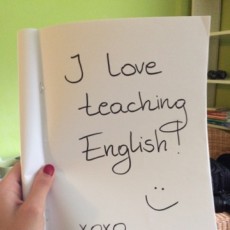 I love
teaching
English!
xoxo